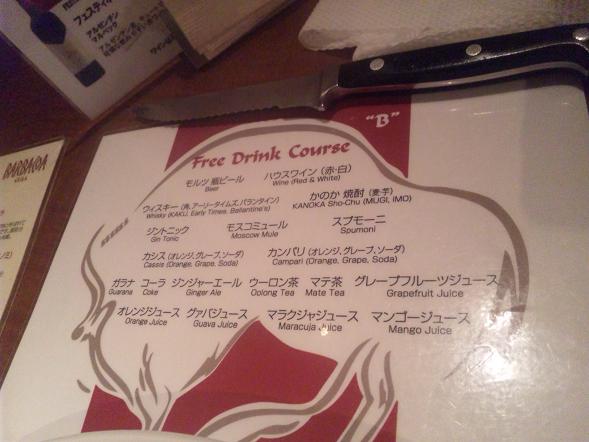 フェスティ
アルゼンチン
マルベック
BARBACOA
"B"
Free Drink Course
モルツ 瓶ビール ハウスワイン (赤・白)
Beer Wine (Red & White)
ウィスキー (角、アーリータイムズ、バランタイン) かのか 焼酎 (麦・芋)
Whisky (KAKU, Early Times, Ballantine's) KANOKA Sho-Chu (MUGI, IMO)
ジントニック モスコミュール スプモーニ
Gin Tonic Moscow Mule Spumoni
カシス (オレンジ、グレープ、ソーダ) カンパリ (オレンジ、グレープ、ソーダ)
Cassis (Orange, Grape, Soda) Campari (Orange, Grape, Soda)
ガラナ コーラ ジンジャーエール ウーロン茶 マテ茶 グレープフルーツジュース
Guarana Coke Ginger Ale Oolong Tea Mate Tea Grapefruit Juice
オレンジジュース グァバジュース マラクジャジュース マンゴージュース
Orange Juice Guava Juice Maracuja Juice Mango Juice